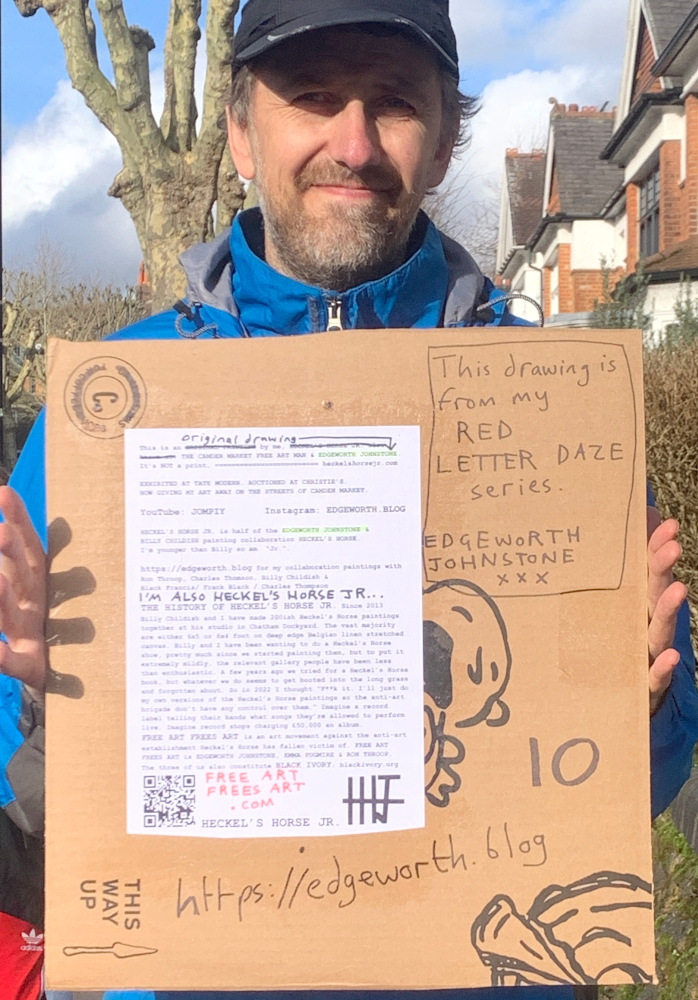 This drawing is
from my
RED
LETTER DAZE
series.
EDGEWORTH
JOHNSTONE
x x x
original drawing
This is an by me,
THE CAMDEN MARKET FREE ART MAN & EDGEWORTH JOHNSTONE
It's NOT a print. heckelshorsejr.com
EXHIBITED AT TATE MODERN. AUCTIONED AT CHRISTIE'S.
NOW GIVING MY ART AWAY ON THE STREETS OF CAMDEN MARKET.
YouTube: JOMPIY Instagram: EDGEWORTH.BLOG
HECKEL'S HORSE JR. is half of the EDGEWORTH JOHNSTONE &
BILLY CHILDISH painting collaboration HECKEL'S HORSE.
I'm younger than Billy so am "Jr.".
https://edgeworth.blog for my collaboration paintings with
Ron Throop, Charles Thomson, Billy Childish &
Black Francis/ Frank Black / Charles Thompson
I'M ALSO HECKEL'S HORSE JR...
THE HISTORY OF HECKEL'S HORSE JR. Since 2013
Billy Childish and I have made 200ish Heckel's Horse paintings
together at his studio in Chatham Dockyard. The vast majority
are either 6x5 or 6x8 foot on deep edge Belgian linen stretched
canvas. Billy and I have been wanting to do a Heckel's Horse
show, pretty much since we started painting them, but to put it
extremely mildly, the relevant gallery people have been less
than enthusiastic. A few years ago we tried for a Heckel's Horse
book, but whatever we do seems to get booted into the long grass
and forgotten about. So in 2022 I thought "F**k it, I'll just do
my own versions of the Heckel's Horse paintings so the anti-art
brigade don't have any control over them." Imagine a record
label telling their bands what songs they're allowed to perform
live. Imagine record shops charging £50,000 an album.
FREE ART FREES ART is an art movement against the anti-art
establishment Heckel's Horse has fallen victim of. FREE ART
FREES ART is EDGEWORTH JOHNSTONE, EMMA PUGMIRE & RON THROOP.
The three of us also constitute BLACK IVORY. blackivory.org
FREE ART
FREES ART
.COM
HECKEL'S HORSE JR.
10
https://edgeworth.blog
THIS
WAY
UP
adidas